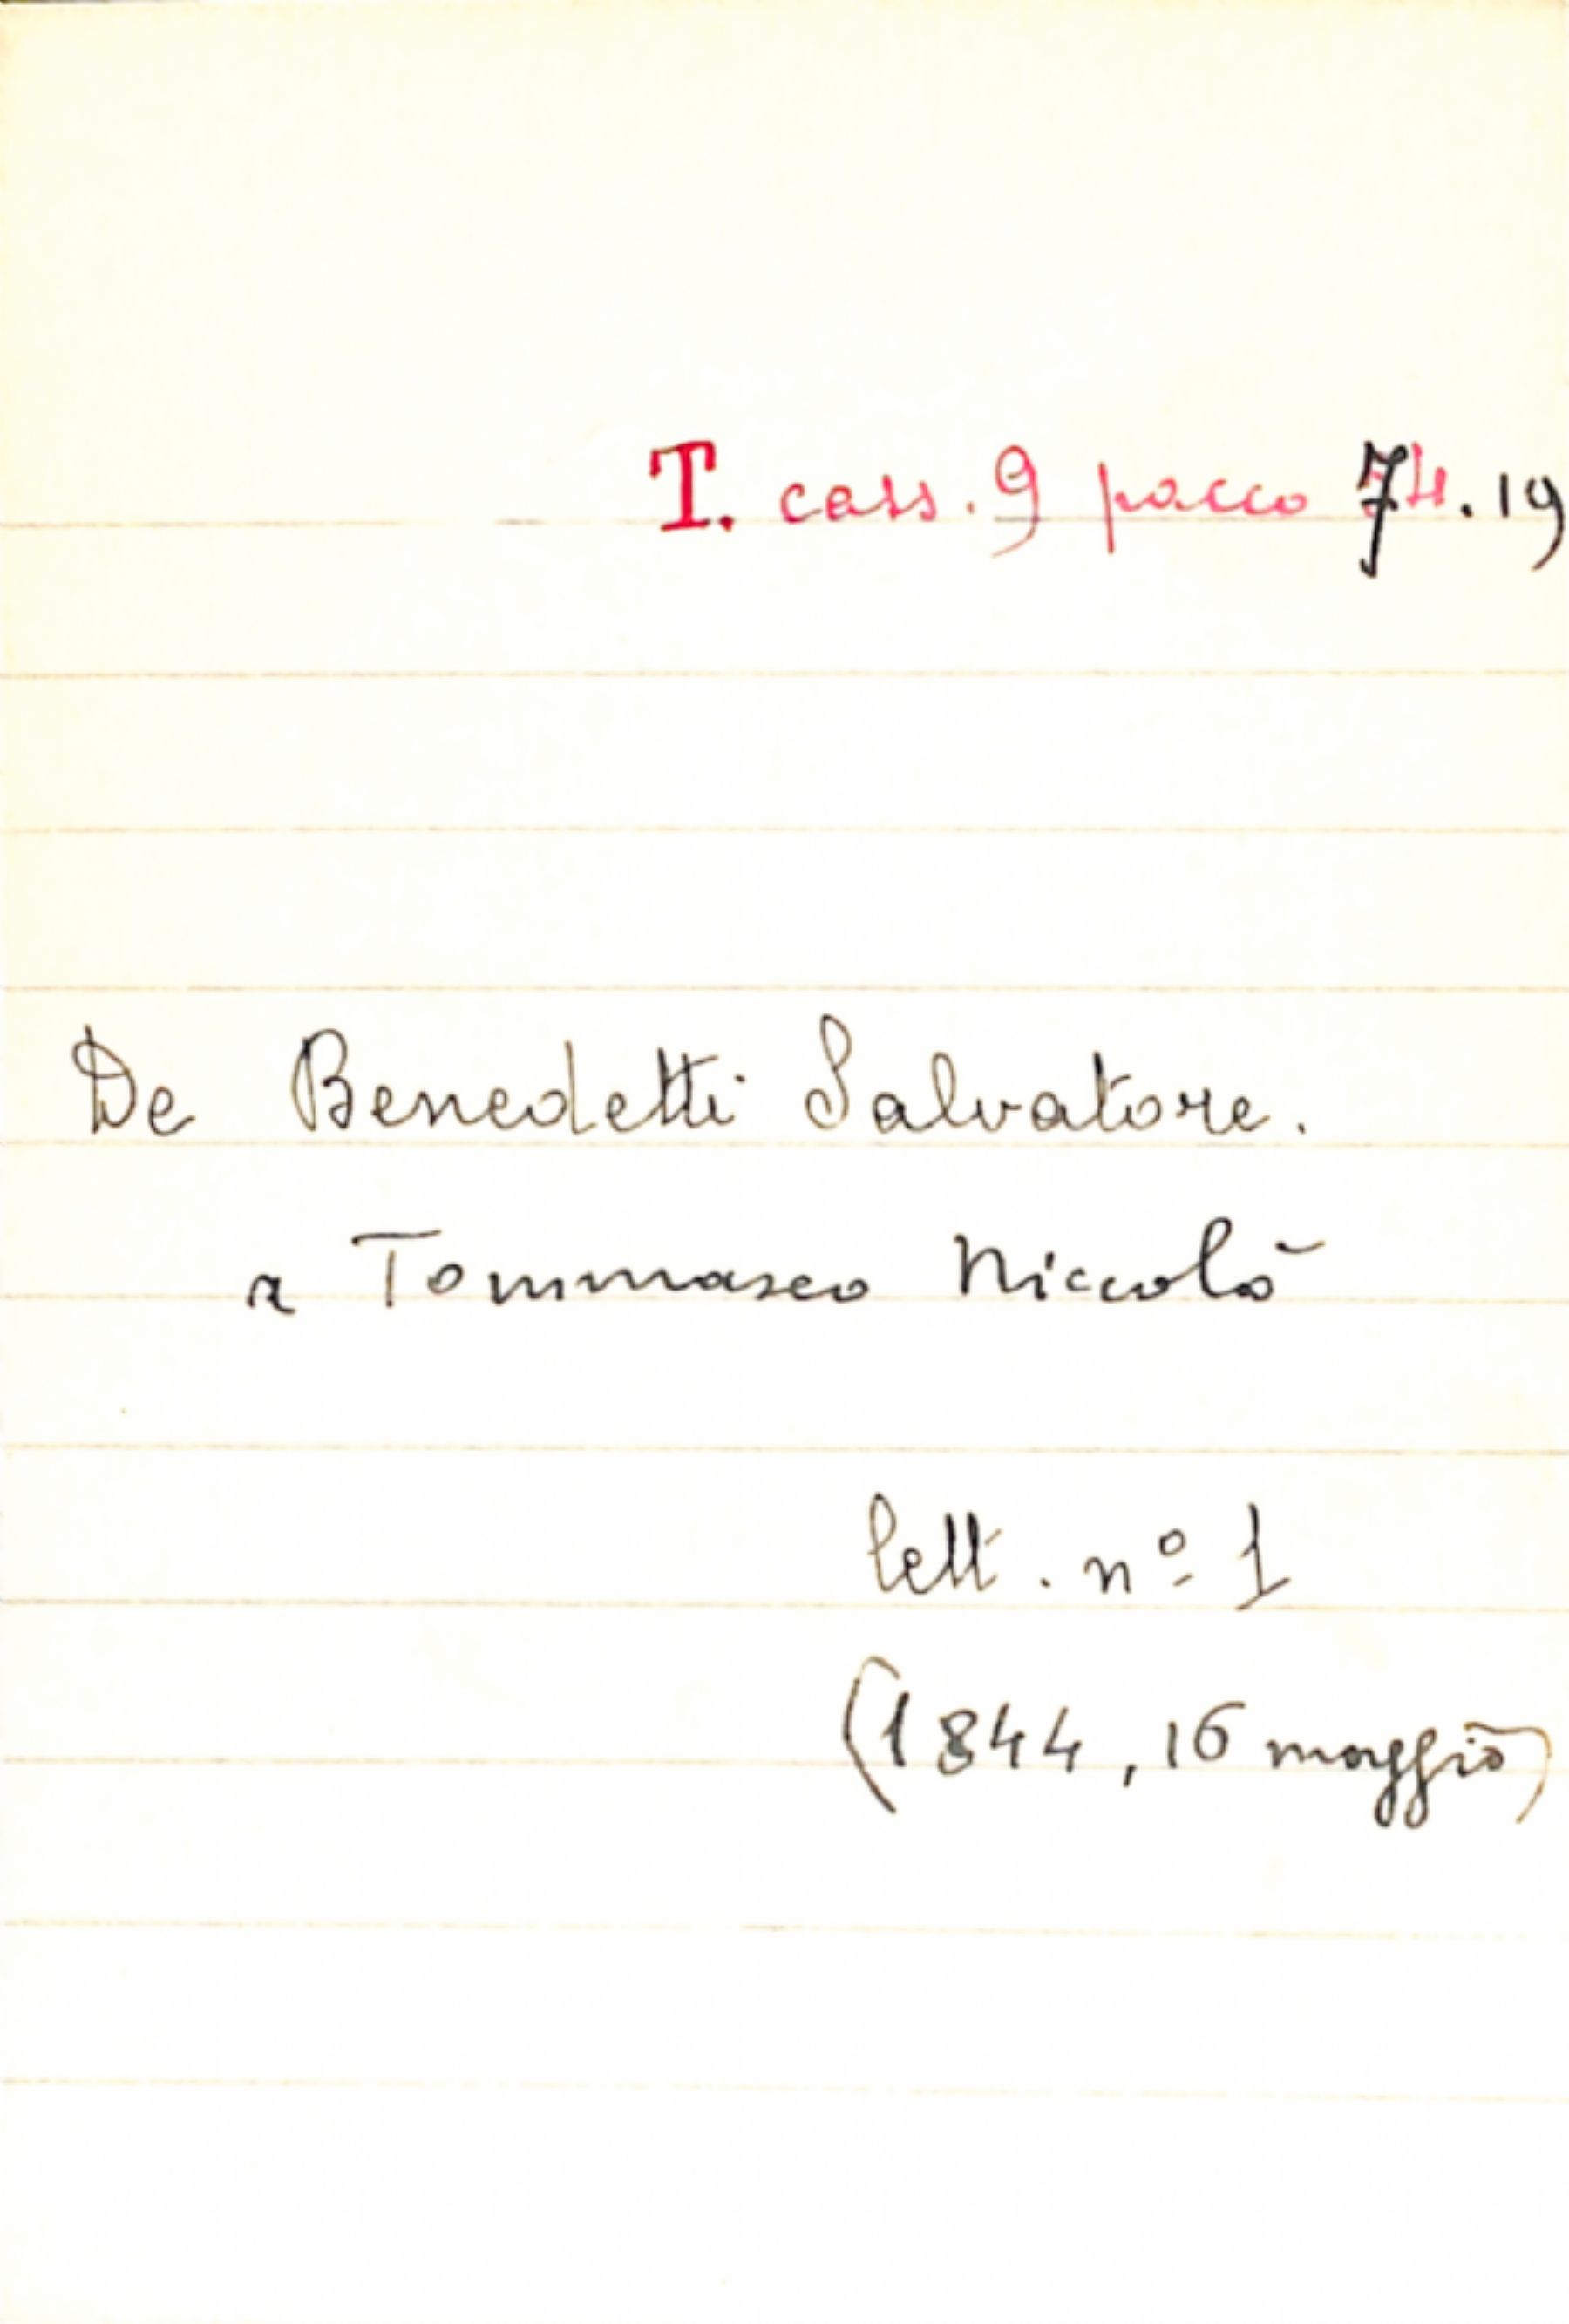 T. cass. 9 pacco 74.19
De Benedetti Salvatore.
a Tommaseo Niccolò
lett. nº 1
(1844, 16 maggio)